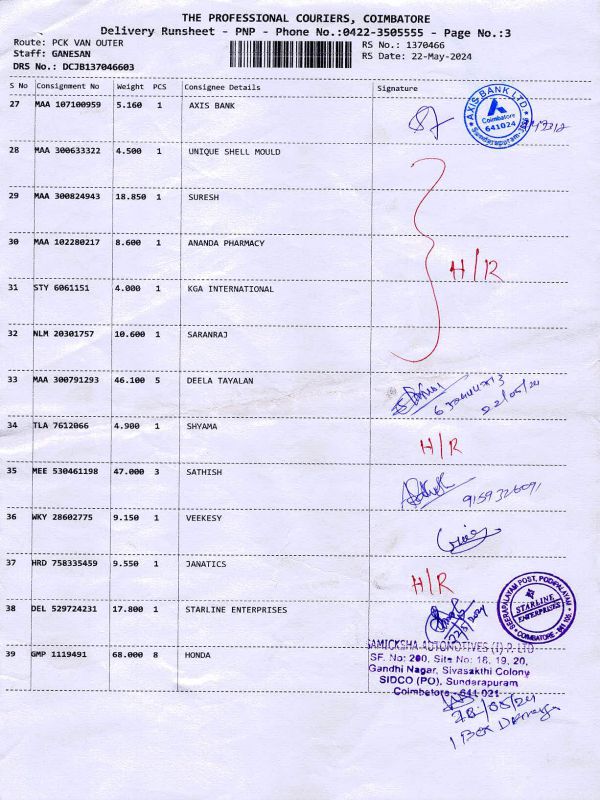 THE PROFESSIONAL COURIERS, COIMBATORE
Delivery Runsheet - PNP - Phone No.:0422-3505555 - Page No.:3
Route: PCK VAN OUTER
RS No.: 1370466
Staff: GANESAN
RS Date: 22-May-2024
DRS No.: DCJB137046603
S No Consignment No Weight PCS Consignee Details Signature
27 MAA 107100959 5.160 1 AXIS BANK
AXIS BANK LTD.
Coimbatore
641024
Sundarapuram
28 MAA 300633322 4.500 1 UNIQUE SHELL MOULD
29 MAA 300824943 18.850 1 SURESH
30 MAA 102280217 8.600 1 ANANDA PHARMACY
H/R
31 STY 6061151 4.000 1 KGA INTERNATIONAL
32 NLM 20301757 10.600 1 SARANRAJ
33 MAA 300791293 46.100 5 DEELA TAYALAN
22/05/24
34 TLA 7612066 4.900 1 SHYAMA
H/R
35 MEE 530461198 47.000 3 SATHISH
36 WKY 28602775 9.150 1 VEEKESY
37 HRD 758335459 9.550 1 JANATICS
H/R
38 DEL 529724231 17.800 1 STARLINE ENTERPRISES
STARLINE
ENTERPRISES
COIMBATORE
39 GMP 1119491 68.000 8 HONDA
SAMICKSHA AUTOMOTIVES (I) P. LTD
SF. No: 200, Site No: 18, 19, 20,
Gandhi Nagar, Sivasakthi Colony
SIDCO (PO), Sundarapuram
Coimbatore - 641 021
1 Box Damage